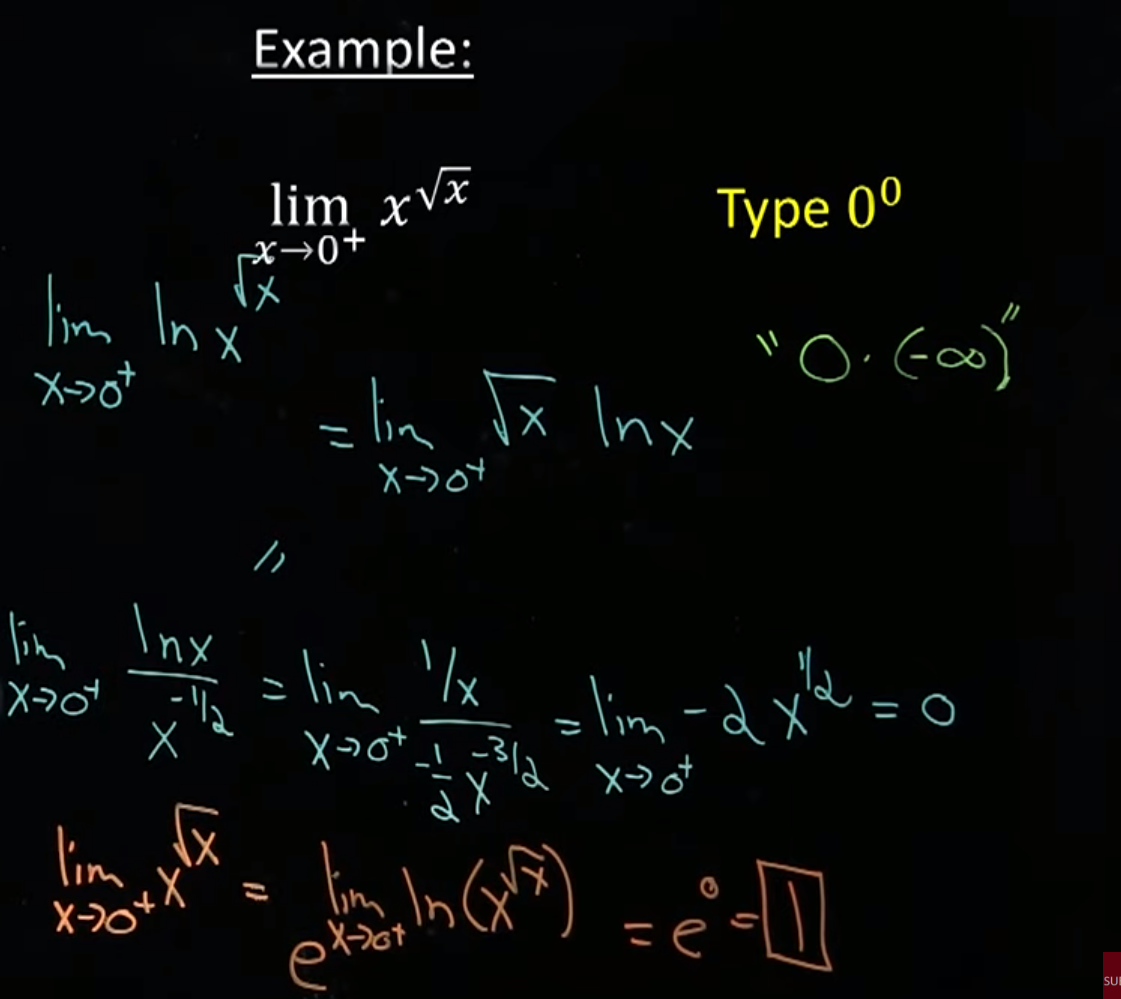 Example:
lim x→0⁺ x^√x
Type 0⁰
lim x→0⁺ ln x^√x
"0 · (-∞)"
= lim x→0⁺ √x ln x
"
lim x→0⁺ ln x / x^(-1/2) = lim x→0⁺ (1/x) / (-1/2 x^(-3/2)) = lim x→0⁺ -2 x^(1/2) = 0
lim x→0⁺ x^√x = e^(lim x→0⁺ ln(x^√x)) = e⁰ = 1
SU